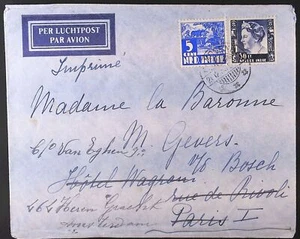 PER LUCHTPOST
PAR AVION
5
CENT
NED. INDIE
Imprimé
Madame La Baronne
M. Gevers.
c/o Van Eghen
v/o Bosch
Hôtel Wagram
rue de Rivoli
464 Heeren Gracht
Paris I
Amsterdam